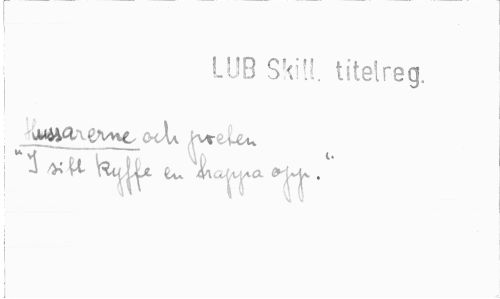 LUB Skill. titelreg.
Hussarerne och poeten
"I sitt kyffe en trappa opp."